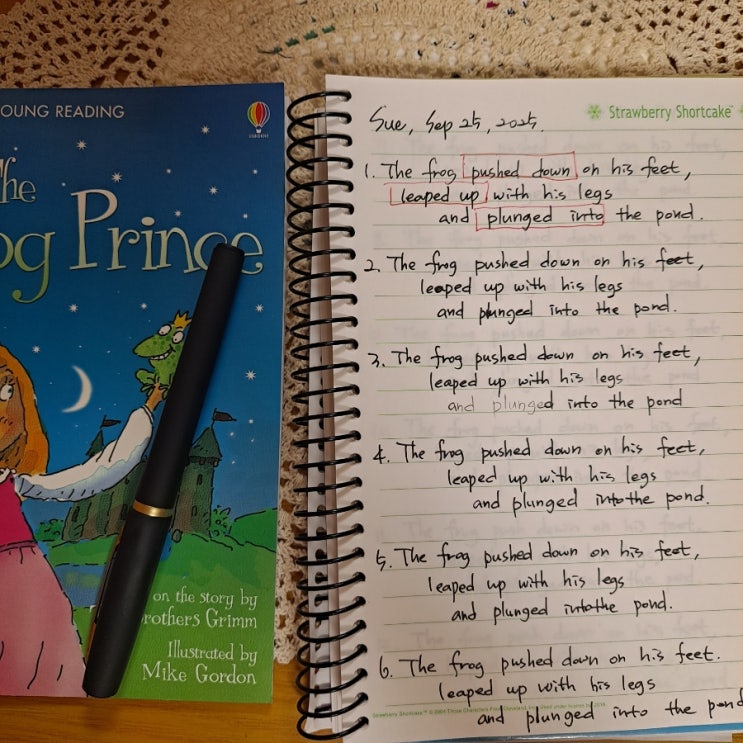 OUNG READING
The
og Prince
on the story by
rothers Grimm
Illustrated by
Mike Gordon
Strawberry Shortcake™
Sue, Sep 25, 2025.
1. The frog pushed down on his feet,
leaped up with his legs
and plunged into the pond.
2. The frog pushed down on his feet,
leaped up with his legs
and plunged into the pond.
3. The frog pushed down on his feet,
leaped up with his legs
and plunged into the pond
4. The frog pushed down on his feet,
leaped up with his legs
and plunged into the pond.
5. The frog pushed down on his feet,
leaped up with his legs
and plunged into the pond.
6. The frog pushed down on his feet.
leaped up with his legs
and plunged into the pond